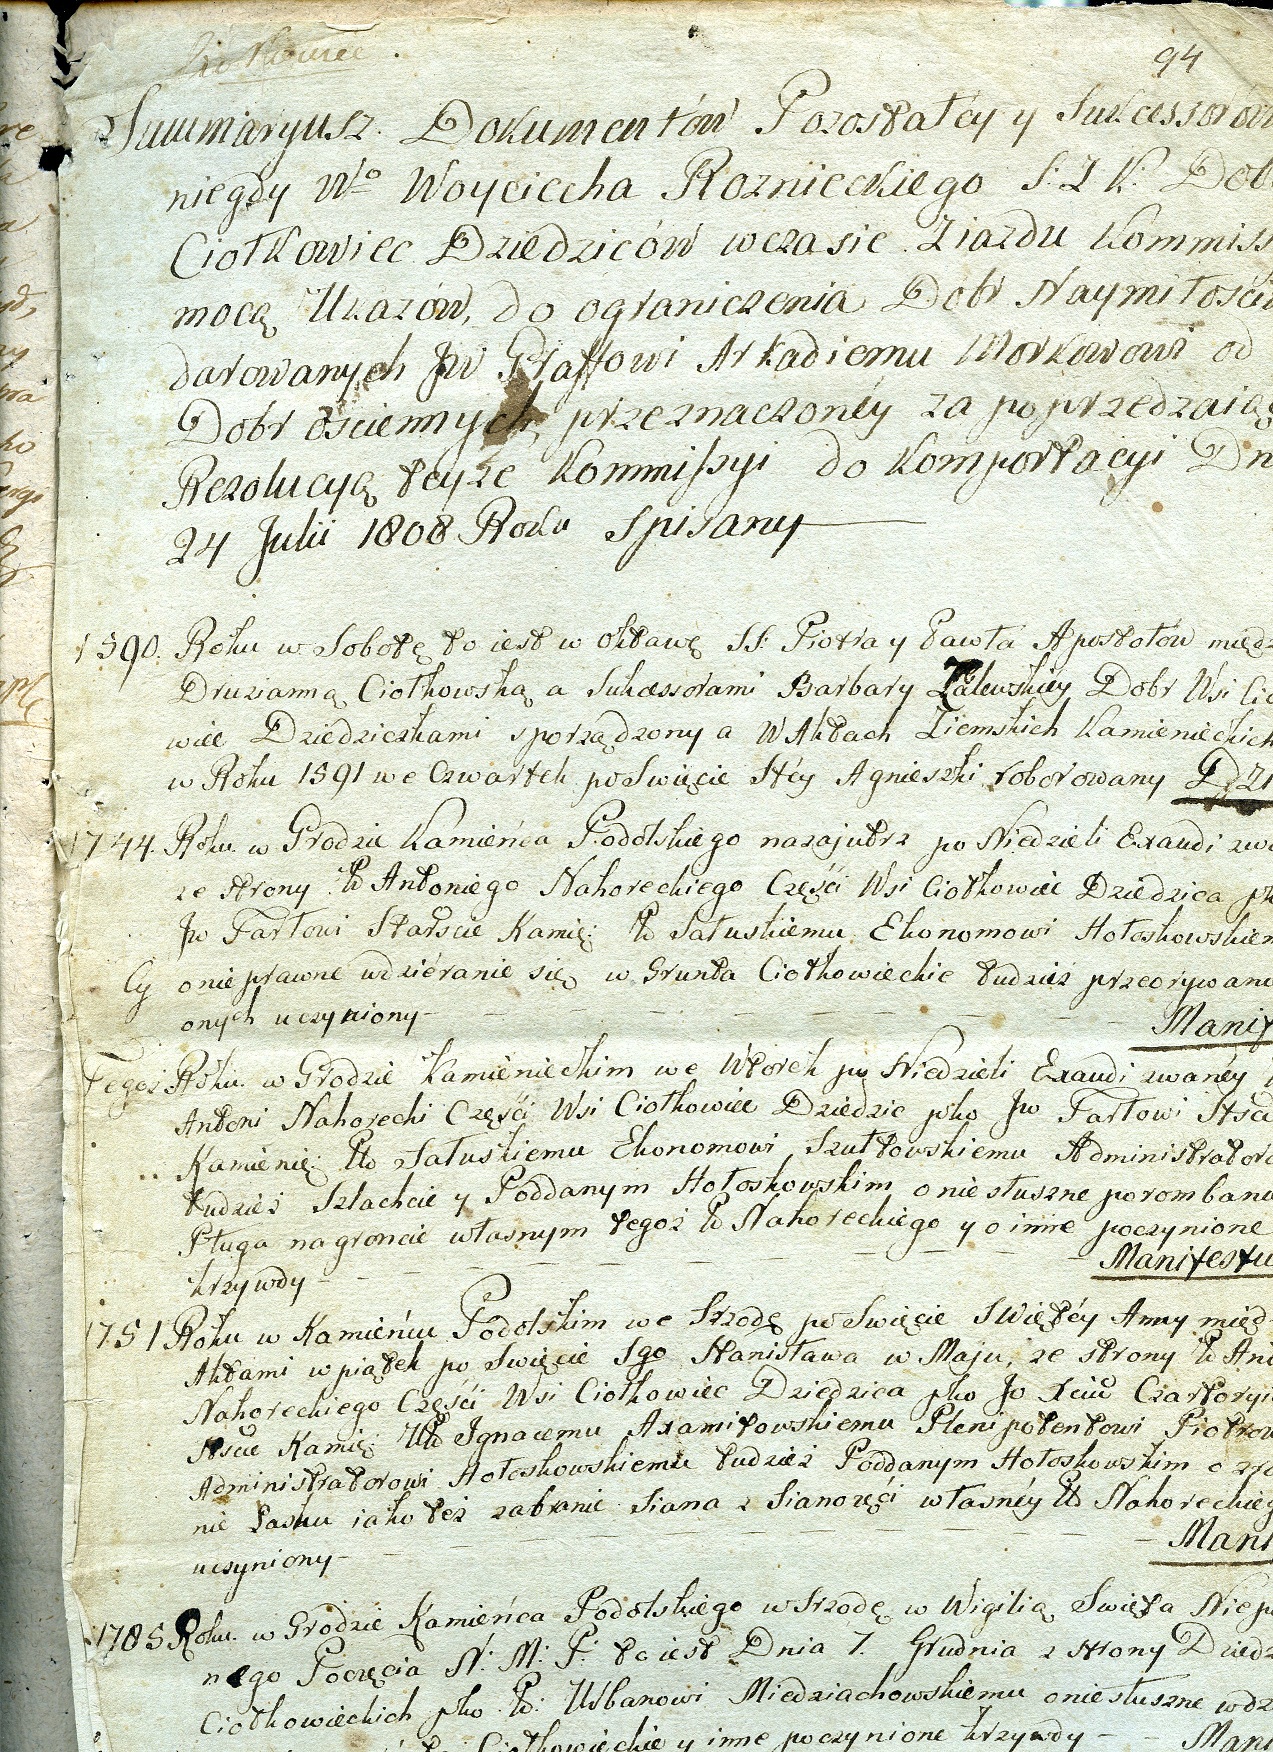 Ciołkowiec.
94
Summaryusz. Dokumentów Pozostałey y Sukcessorów
niegdy Wo Woyciecha Roznieckiego S: Z K: Dob
Ciołkowiec Dziedziców w czasie Ziazdu Kommiss
mocą Ukazów, do ograniczenia Dobr Naymiłości
darowanych Jw Graffowi Arkadiemu Morkowowi od
Dobr ościennych, przeznaczonéy za poprzedzaią
Rezolucyą teyże Kommissyi do Komportacyi Dn
24 Julii 1808 Roku Spisany
1590. Roku w Sobotę to iest w Oktawę SS: Piotra y Pawła Apostołów międz
Druzanną Ciołkowską a Sukcessorami Barbary Zalewskiéy Dobr Wsi Cio
wiec Dziedziczkami sporządzony a W Aktach Ziemskich Kamienieckich
w Roku 1591 we Czwartek po Swięcie Stéy Agnieszki roborowany Dzi
1744. Roku w Grodzie Kamieńca Podolskiego nazajutrz po Niedzieli Exaudi zwa
ze strony W Antoniego Nahoreckiego Części Wsi Ciołkowiec Dziedzica pko
Jw Tarłowi Starście Kamię: W Satuskiemu Ekonomowi Hołoskowskiem
Cy o nieprawne wdzieranie się w Grunta Ciołkowieckie tudzież przeorywani
onych uczyniony - Manif
Tegoż Roku w Grodzie Kamienieckim we Wtorek po Niedzieli Exaudi zwanéy
Antoni Nahorecki Części Wsi Ciołkowiec Dziedzic pko Jw Tarłowi Stści
Kamienię: W Satuskiemu Ekonomowi Szutkowskiemu Administrator
tudzież Szlachcie y Poddanym Hołoskowskim o niesłuszne porombani
Pługa na groncie własnym tegoż W Nahoreckiego y o inne poczynione
krzywdy - Manifestu
1751 Roku w Kamieńcu Podolskim we Srzodę po Swięcie Swiętéy Anny międ
Aktami w piątek po Swięcie Sgo Stanisława w Maju, ze strony W Ant
Nahoreckiego Części Wsi Ciołkowiec Dziedzica pko Jo Xciu Czartoryi
Stście Kamię: W Ignacemu Axamitowskiemu Plenipotentowi Piotrow
Administratorowi Hołoskowskiemu tudzież Poddanym Hołoskowskim o zrą
nie Lasku iako też zabranie Siana z Sianożęci własnéy W Nahoreckieg
uczyniony - Mani
1785 Roku. w Grodzie Kamieńca Podolskiego w Srzodę w Wigilią Swięta Niep
nego Poczęcia N: M: P: to iest Dnia 7. Grudnia z strony Dziedz
Ciołkowieckich pko W: Urbanowi Miedziachowskiemu o niesłuszne wdz
Ciołkowieckie y inne poczynione krzywdy - Mani